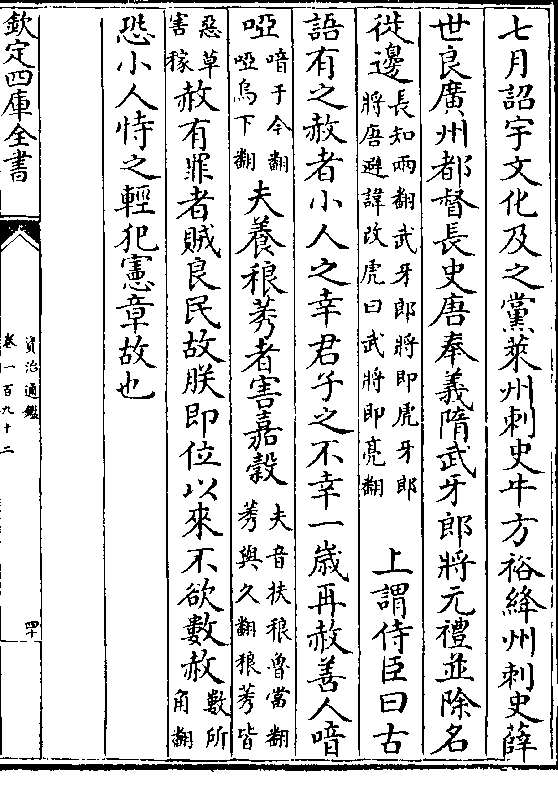 七月詔宇文化及之黨萊州刺史牛方裕絳州刺史薛
世良廣州都督長史唐奉義隋武牙郎將元禮並除名
徙邊長知兩翻武牙郎將即虎牙郎將唐避諱改虎曰武將即亮翻上謂侍臣曰古
語有之赦者小人之幸君子之不幸一嵗再赦善人喑
啞喑于今翻啞烏下翻夫養稂莠者害嘉穀夫音扶稂魯當翻莠與久翻稂莠皆
惡草害稼赦有罪者賊良民故朕即位以來不欲數赦數所角翻
恐小人恃之輕犯憲章故也
欽定四庫全書
資治通鑑
卷一百九十二
四十